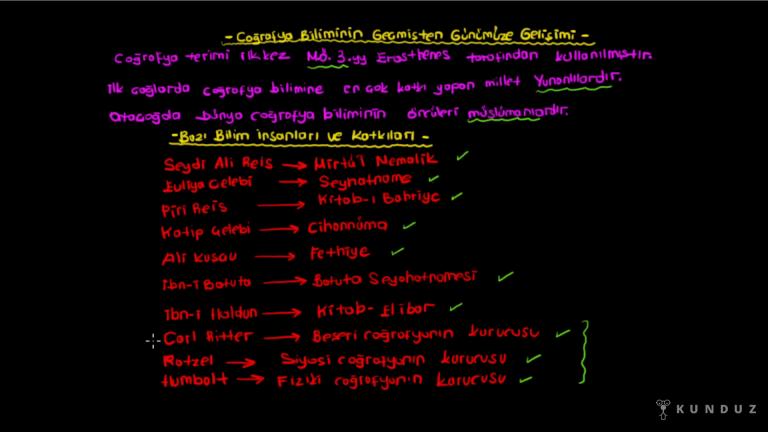 - Coğrafya Biliminin Geçmişten Günümüze Gelişimi -
Coğrafya terimi ilk kez Mö. 3.yy Erasthenes tarafından kullanılmıştır.
İlk çağlarda coğrafya bilimine en çok katkı yapan millet Yunanlılardır.
Ortaçağda Dünya coğrafya biliminin öncüleri müslümanlardır.
- Bazı Bilim İnsanları ve Katkıları -
Seydi Ali Reis → Mirtâ'l Memalik ✓
Evliya Çelebi → Seyhatname ✓
Piri Reis → Kitab-ı Bahriye ✓
Katip Çelebi → Cihannüma ✓
Ali Kuşçu → Fethiye ✓
İbn-i Batuta → Batuta Seyahatnamesi ✓
İbn-i Haldun → Kitab-Elibar ✓
Carl Ritter → Beşeri coğrafyanın kurucusu ✓
Ratzel → Siyasi coğrafyanın kurucusu ✓
Humbolt → Fiziki coğrafyanın kurucusu ✓
KUNDUZ